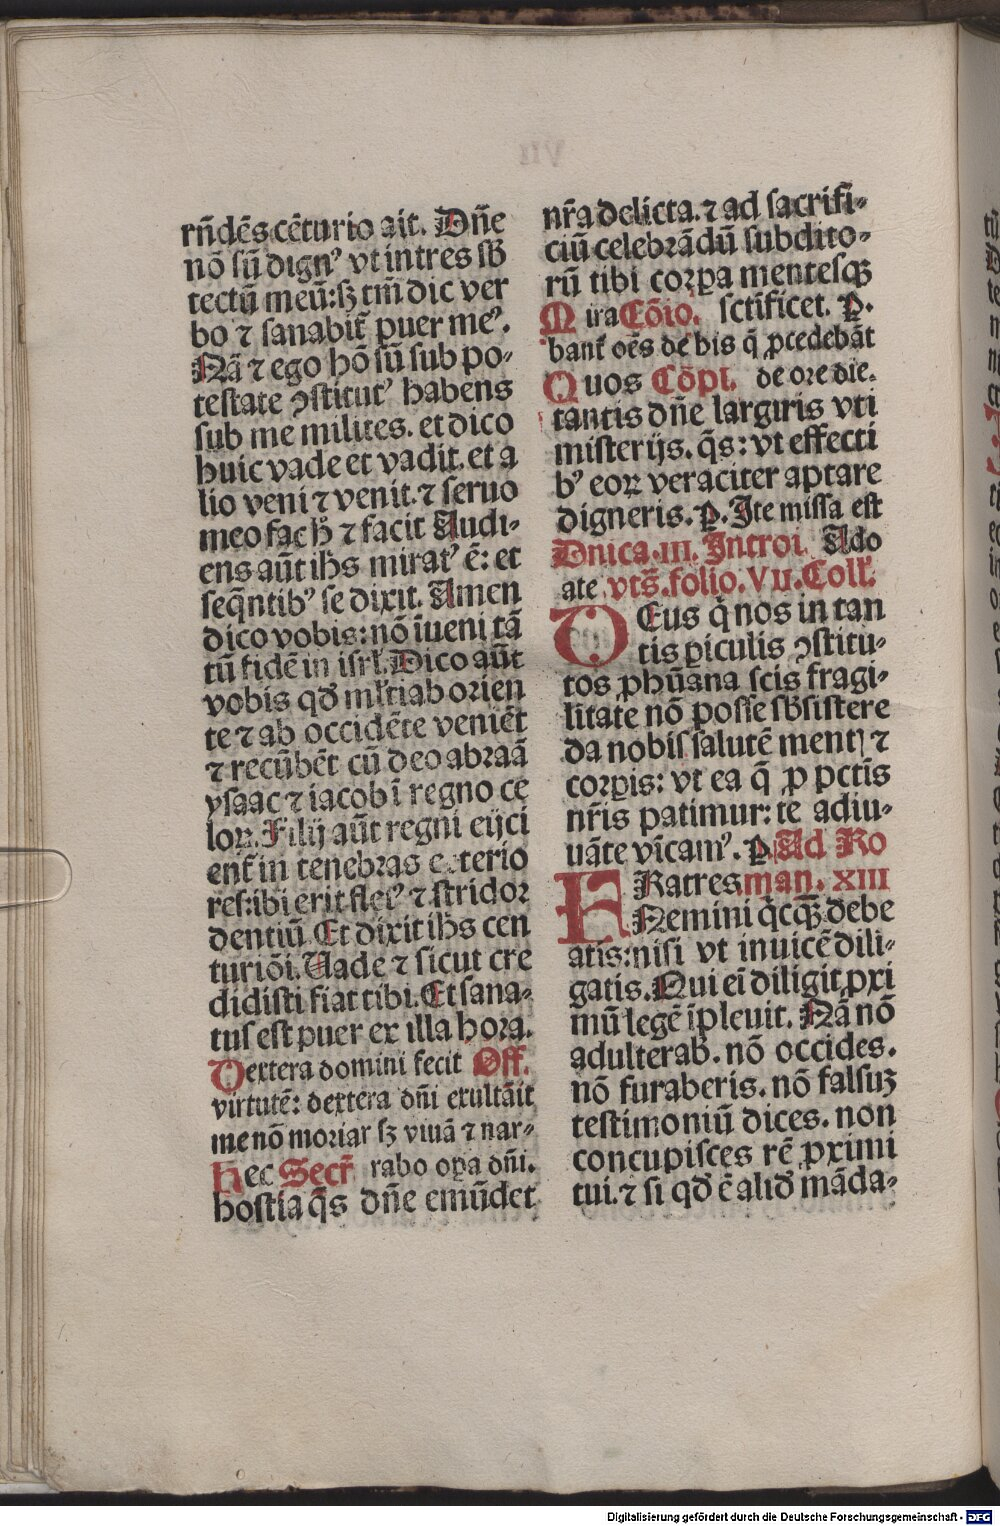 rn̄dēs cēturio ait. Dn̄e
nō sū dignꝰ vt intres sb̄
tectū meū: sꝫ tm̄ dic ver
bo ⁊ sanabit᷑ puer meꝰ.
Nā ⁊ ego hō sū sub po-
testate ꝯstitutꝰ habens
sub me milites. et dico
huic vade et vadit. et a
lio veni ⁊ venit. ⁊ seruo
meo fac h̄ ⁊ facit Audi-
ens aūt ih̄s miratꝰ ē: et
seq̄ntibꝰ se dixit. Amen
dico vobis: nō īueni tā
tū fidē in isrl̄. Dico aūt
vobis qd̄ ml̄ti ab orien
te ⁊ ab occidēte veniēt
⁊ recūbēt cū deo abraā
ysaac ⁊ iacob ī regno ce
loꝝ. Filij aūt regni eijci
ent᷑ in tenebras exterio
res: ibi erit fletꝰ ⁊ stridor
dentiū. Et dixit ih̄s cen
turiōi. Vade ⁊ sicut cre
didisti fiat tibi. Et sana-
tus est puer ex illa hora.
Dextera domini fecit Off.
virtutē: dextera dn̄i exultāit
me nō moriar sꝫ viuā ⁊ nar-
Hec Secr̄ rabo oꝑa dn̄i.
hostia q̄s dn̄e emūdet
nr̄a delicta. ⁊ ad sacrifi-
ciū celebrādū subdito-
rū tibi corꝑa mentesqꝫ
Mira Cōio. sctīficet. ꝑ.
bant᷑ oēs de his q̄ ꝓcedebāt
Quos Cōpl. de ore die.
tantis dn̄e largiris vti
misterijs. q̄s: vt effecti
bꝰ eoꝝ veraciter aptare
digneris. ꝑ. Ite missa est
Dnica. III. Introi. Ado
ate vts̄. folio. VII. Coll̄.
DEus q̄ nos in tan
tis ꝑiculis ꝯstitu-
tos ꝓ hūana scis fragi-
litate nō posse sb̄sistere
da nobis salutē mentꝭ ⁊
corꝑis: vt ea q̄ ꝓ pctīs
nr̄is patimur: te adiu-
uāte vīcamꝰ. ꝑ. Ad Ro
FRatres man. XIII
Nemini q̄cqꝫ debe
atis: nisi vt inuicē dili-
gatis. Qui eī diligit ꝓxi
mū legē īpleuit. Nā nō
adulterab̄. nō occides.
nō furaberis. nō falsuꝫ
testimoniū dices. non
concupisces rē ꝓximi
tui. ⁊ si qd̄ ē alid̄ māda-
Digitalisierung gefördert durch die Deutsche Forschungsgemeinschaft - DFG